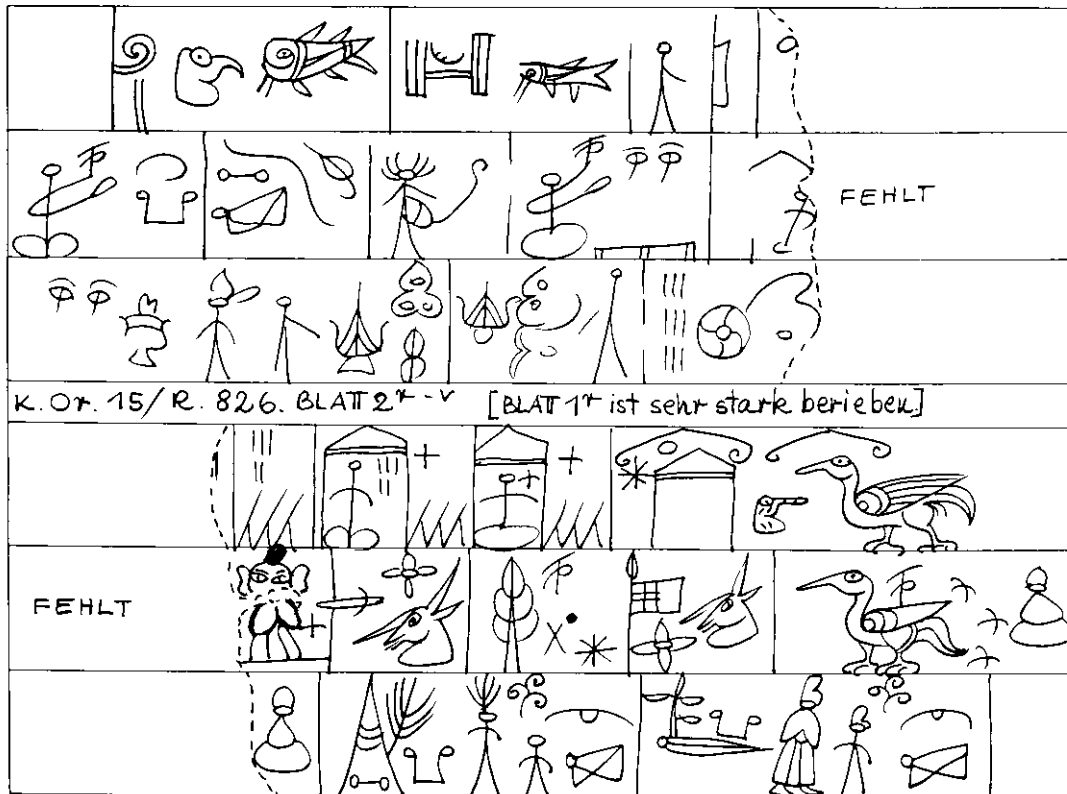 FEHLT
K.Or. 15/R. 826. BLATT 2r-v [BLATT 1r ist sehr stark berieben]
FEHLT